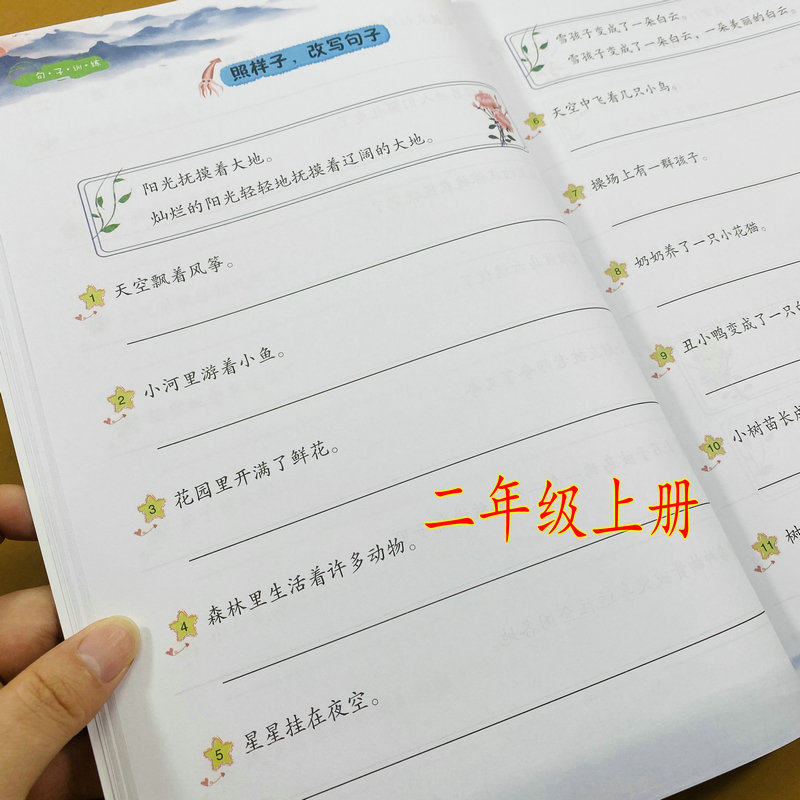 句·子·训·练
照样子，改写句子
阳光抚摸着大地。
灿烂的阳光轻轻地抚摸着辽阔的大地。
1 天空飘着风筝。
2 小河里游着小鱼。
3 花园里开满了鲜花。
4 森林里生活着许多动物。
5 星星挂在夜空。
雪孩子变成了一朵白云。
雪孩子变成了一朵白云，一朵美丽的白云。
6 天空中飞着几只小鸟。
7 操场上有一群孩子。
8 奶奶养了一只小花猫。
9 丑小鸭变成了一只
10 小树苗长成
11 树
二年级上册